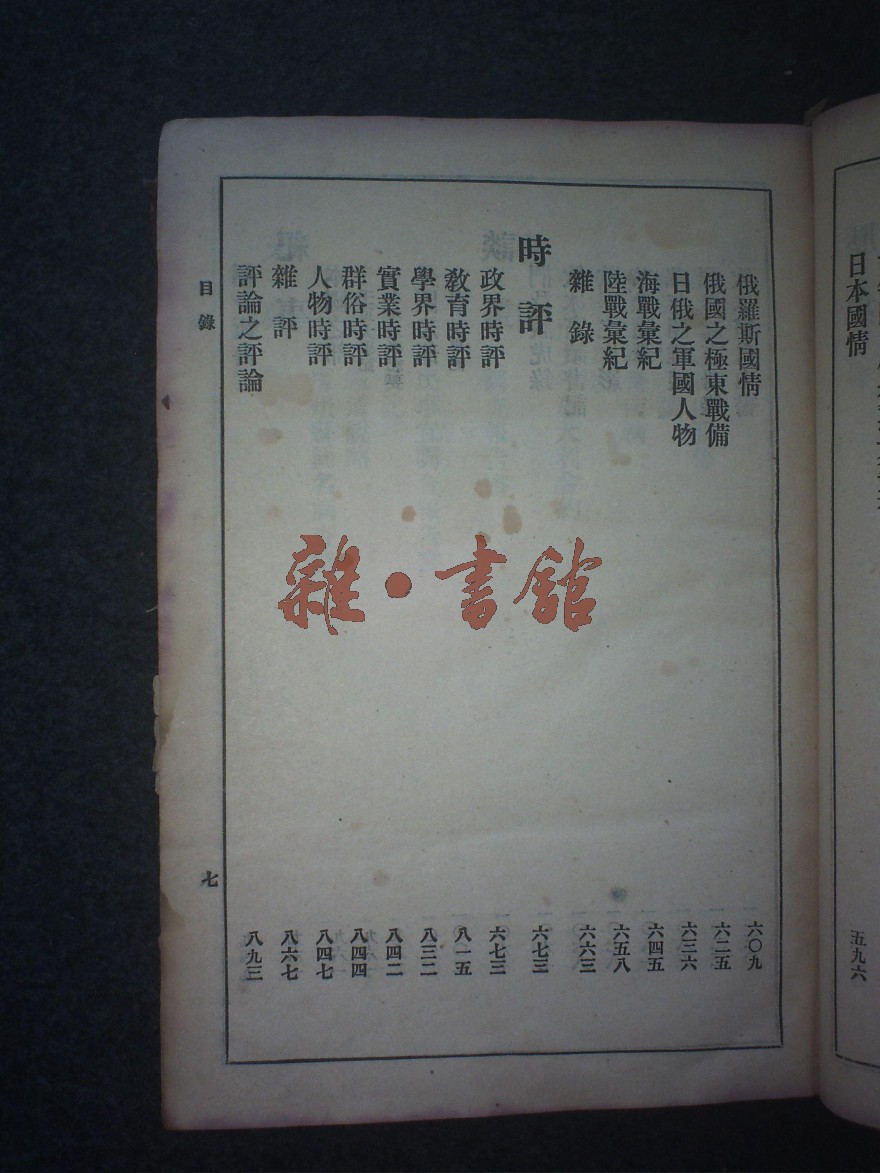 日本國情 五九六
俄羅斯國情 六〇九
俄國之極東戰備 六二五
日俄之軍國人物 六三六
海戰彙紀 六四五
陸戰彙紀 六五八
雜錄 六六三
時評 六七三
政界時評 六七三
敎育時評 八一五
學界時評 八三二
實業時評 八四二
群俗時評 八四四
人物時評 八四七
雜評 八六七
評論之評論 八九三
目錄 七
雜·書館